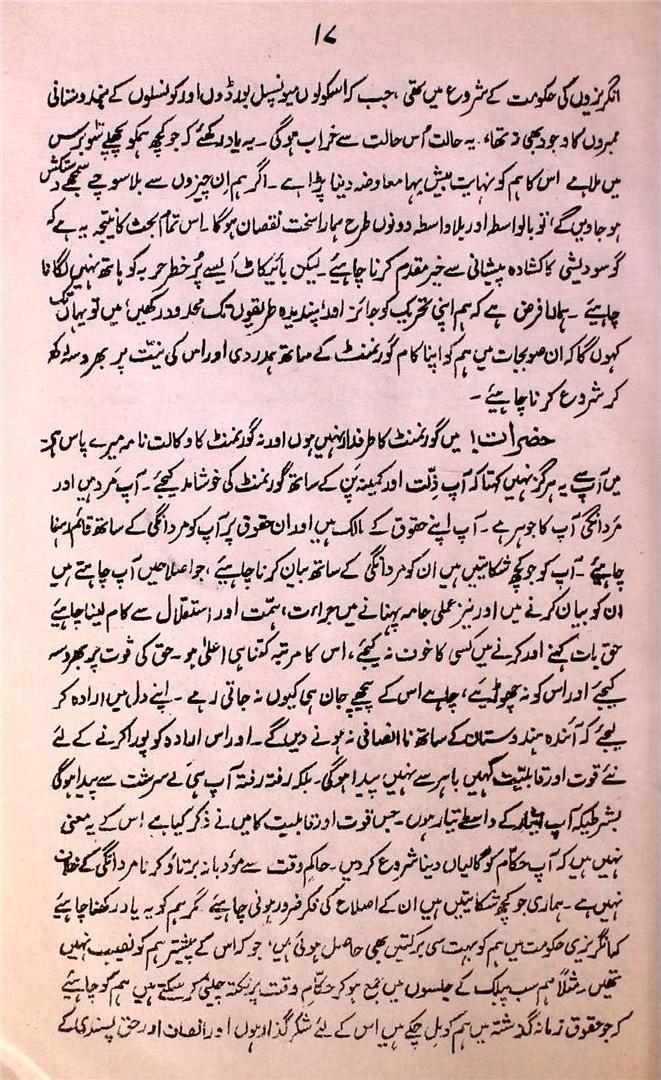 ۱۷
انگریزوں کی حکومت کے شروع میں تھی، جب کہ اسکولوں میونسپل بورڈوں اور کونسلوں کے ہندوستانی
ممبروں کا وجود بھی نہ تھا، یہ حالت اُس حالت سے خراب ہوگی۔ یہ یاد رکھئے کہ جو کچھ ہمکو پچھلے سو برس
میں ملا ہے اس کا ہم کو نہایت بیش بہا معاوضہ دینا پڑا ہے۔ اگر ہم ان چیزوں سے بلا سوچے سمجھے دستکش
ہو جاویں گے، تو بالواسطہ اور بلاواسطہ دونوں طرح ہمارا سخت نقصان ہوگا۔ اس تمام بحث کا نتیجہ یہ ہے کہ
گو سودیشی کا کشادہ پیشانی سے خیر مقدم کرنا چاہیئے۔ لیکن بائیکاٹ ایسے پُر خطر حربہ کو ہاتھ نہیں لگانا
چاہیئے۔ ہمارا فرض ہے کہ ہم اپنی تحریک کو جائز اور پسندیدہ طریقوں تک محدود رکھیں، میں تو یہاں تک
کہوں گا کہ ان صوبجات میں ہم کو اپنا کام گورنمنٹ کے ساتھ ہمدردی اور اس کی نیت پر بھروسہ رکھ
کر شروع کرنا چاہیئے۔
حضرات! میں گورنمنٹ کا طرفدار نہیں ہوں اور نہ گورنمنٹ کا وکالت نامہ میرے پاس ہے
میں آپ سے یہ ہرگز نہیں کہتا کہ آپ ذلّت اور کمینہ پن کے ساتھ گورنمنٹ کی خوشامد کیجئے۔ آپ مرد ہیں اور
مردانگی آپ کا جوہر ہے۔ آپ اپنے حقوق کے مالک ہیں اور ان حقوق پر آپ کو مردانگی کے ساتھ قائم رہنا
چاہیئے۔ آپ کو جو کچھ شکایتیں ہیں ان کو مردانگی کے ساتھ بیان کرنا چاہیئے، جو اصلاحیں آپ چاہتے ہیں
ان کو بیان کرنے میں اور نیز عملی جامہ پہنانے میں جراءت، ہمّت اور استقلال سے کام لینا چاہیئے
حق بات کہنے اور کرنے میں کسی کا خوف نہ کیجئے، اس کا مرتبہ کتنا ہی اعلیٰ ہو۔ حق کی قوت پر بھروسہ
کیجئے اور اس کو نہ چھوڑئیے، چاہے اس کے پیچھے جان ہی کیوں نہ جاتی رہے۔ اپنے دل میں ارادہ کر
لیجئے کہ آئندہ ہندوستان کے ساتھ ناانصافی نہ ہونے دیں گے۔ اور اس ارادہ کو پورا کرنے کے لئے
نئے قوت اور قابلیت کہیں باہر سے نہیں پیدا ہوگی۔ بلکہ رفتہ رفتہ آپ ہی کے سرشت سے پیدا ہوگی
بشرطیکہ آپ ایثار کے واسطے تیار ہوں۔ جس قوت اور قابلیت کا میں نے ذکر کیا ہے اس کے یہ معنی
نہیں ہیں کہ آپ حکّام کو گالیاں دینا شروع کر دیں۔ حاکمِ وقت سے مؤدبانہ برتاؤ کرنا مردانگی کے خلاف
نہیں ہے۔ ہماری جو کچھ شکایتیں ہیں ان کے اصلاح کی فکر ضرور ہونی چاہیئے گر ہم کو یہ یاد رکھنا چاہیئے
کہ انگریزی حکومت میں ہم کو بہت سی برکتیں بھی حاصل ہوئی ہیں، جو کہ اس کے پیشتر ہم کو نصیب نہیں
تھیں۔ مثلاً ہم سب پبلک کے جلسوں میں جمع ہو کر حکّامِ وقت پر نکتہ چینی کر سکتے ہیں ہم کو چاہیئے
کہ جو حقوق زمانہ گذشتہ میں ہم کو مل چکے ہیں اس کے لئے شکر گذار ہوں اور انصاف اور حق پسندی کے